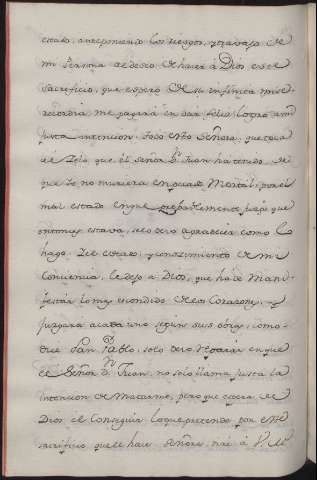 estado, anteponiendo los riesgos, y travajo de
mi Persona al deseo de hacer à Dios este
sacrificio, que espero de su infinita mise
ricordia me pagará en dar feliz logro à mi
justa intencion. Todo esto Señora, que toca
al zelo que el Señor D. Juan ha tenido de
que Yo no muriera en pecado Mortal, por el
mal estado en que probablemente juzgò que
entonces estava, solo devo agradecer como lo
hago. Del estado, y conocimiento de mi
Conciencia, le dejo a Dios, que ha de mani
festar lo mas escondido de los Corazones, y
juzgará a cada uno segun sus obras, como
dice San Pablo, solo devo reparar en que
el Señor D. Juan, no solo llama justa la
intencion de Matarme, pero que espera de
Dios el Conseguir lo que pretende por este
sacrificio que le hace Señora, trae à V. M.